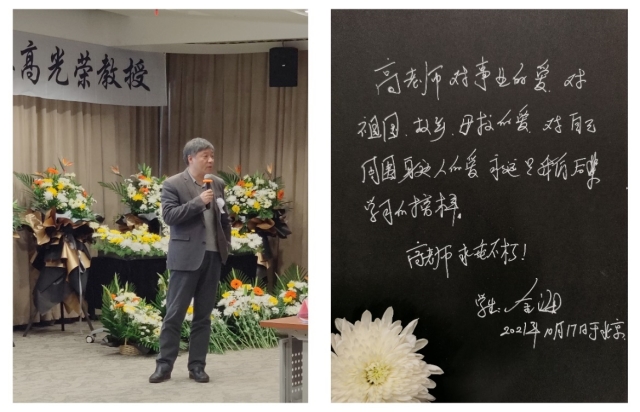 高光荣教授
高老师对事业的爱、对
祖国、故乡、母校的爱、对自己
周围身边人的爱 永远是我们后辈
学习的榜样。
高老师永垂不朽！
学生：金
2021年10月17日于北京